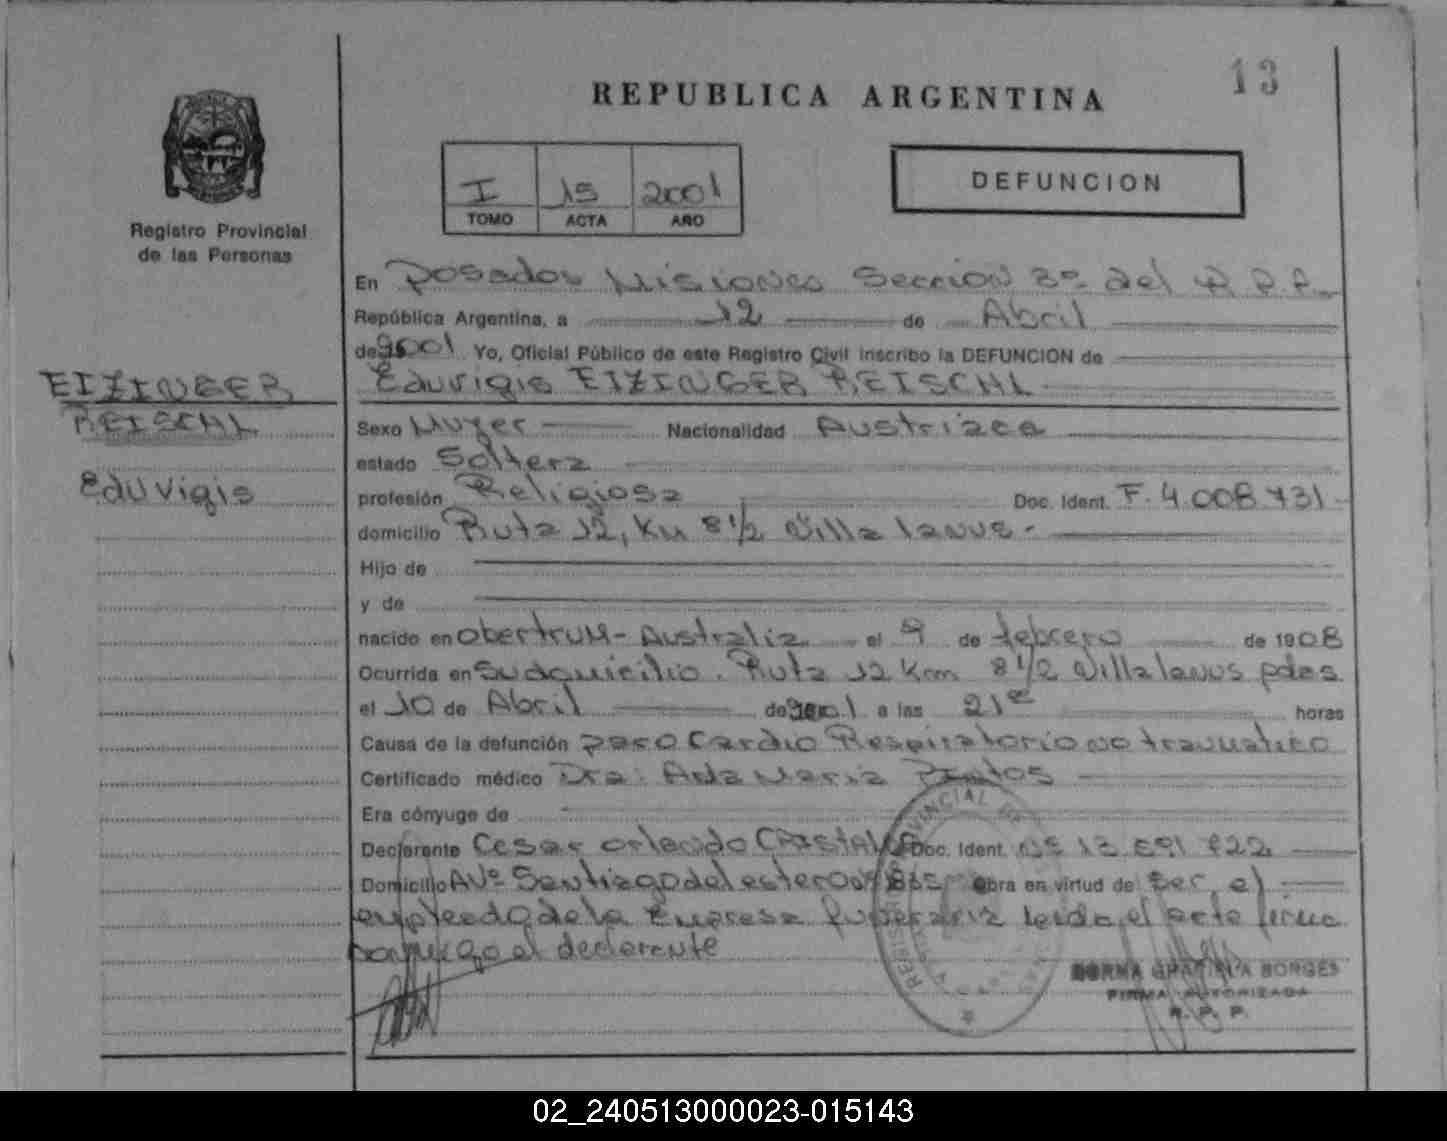 13
REPUBLICA ARGENTINA
DEFUNCION
I 15 2001
TOMO ACTA AÑO
Registro Provincial
de las Personas
En Posadas Misiones Sección 3ª del R.P.P.
República Argentina, a 12 de Abril
de 2001 Yo, Oficial Público de este Registro Civil inscribo la DEFUNCION de
Eduvigis EIZINGER REISCHL
EIZINGER
REISCHL
Eduvigis
Sexo Mujer Nacionalidad Austriaca
estado Soltera
profesión Religiosa Doc. Ident. F. 4.008.731
domicilio Ruta 12, Km 8 1/2 Villa Lanus -
Hijo de
y de
nacido en Obertrum - Australia el 9 de febrero de 1908
Ocurrida en su domicilio. Ruta 12 Km 8 1/2 Villa Lanus pdas
el 10 de Abril de 2001 a las 21 horas
Causa de la defunción paro Cardio Respiratorio no traumatico
Certificado médico Dra: Ana Maria
Era cónyuge de
Declarante Cesar Orlando Doc. Ident. Nº
Domicilio Avº Santiago del estero Obra en virtud de Ser el
empleado de la Empresa funeraria leida el acta firma
conmigo el declarante
NORMA GRACIELA BORGES
FIRMA AUTORIZADA
R. P. P.
02_240513000023-015143